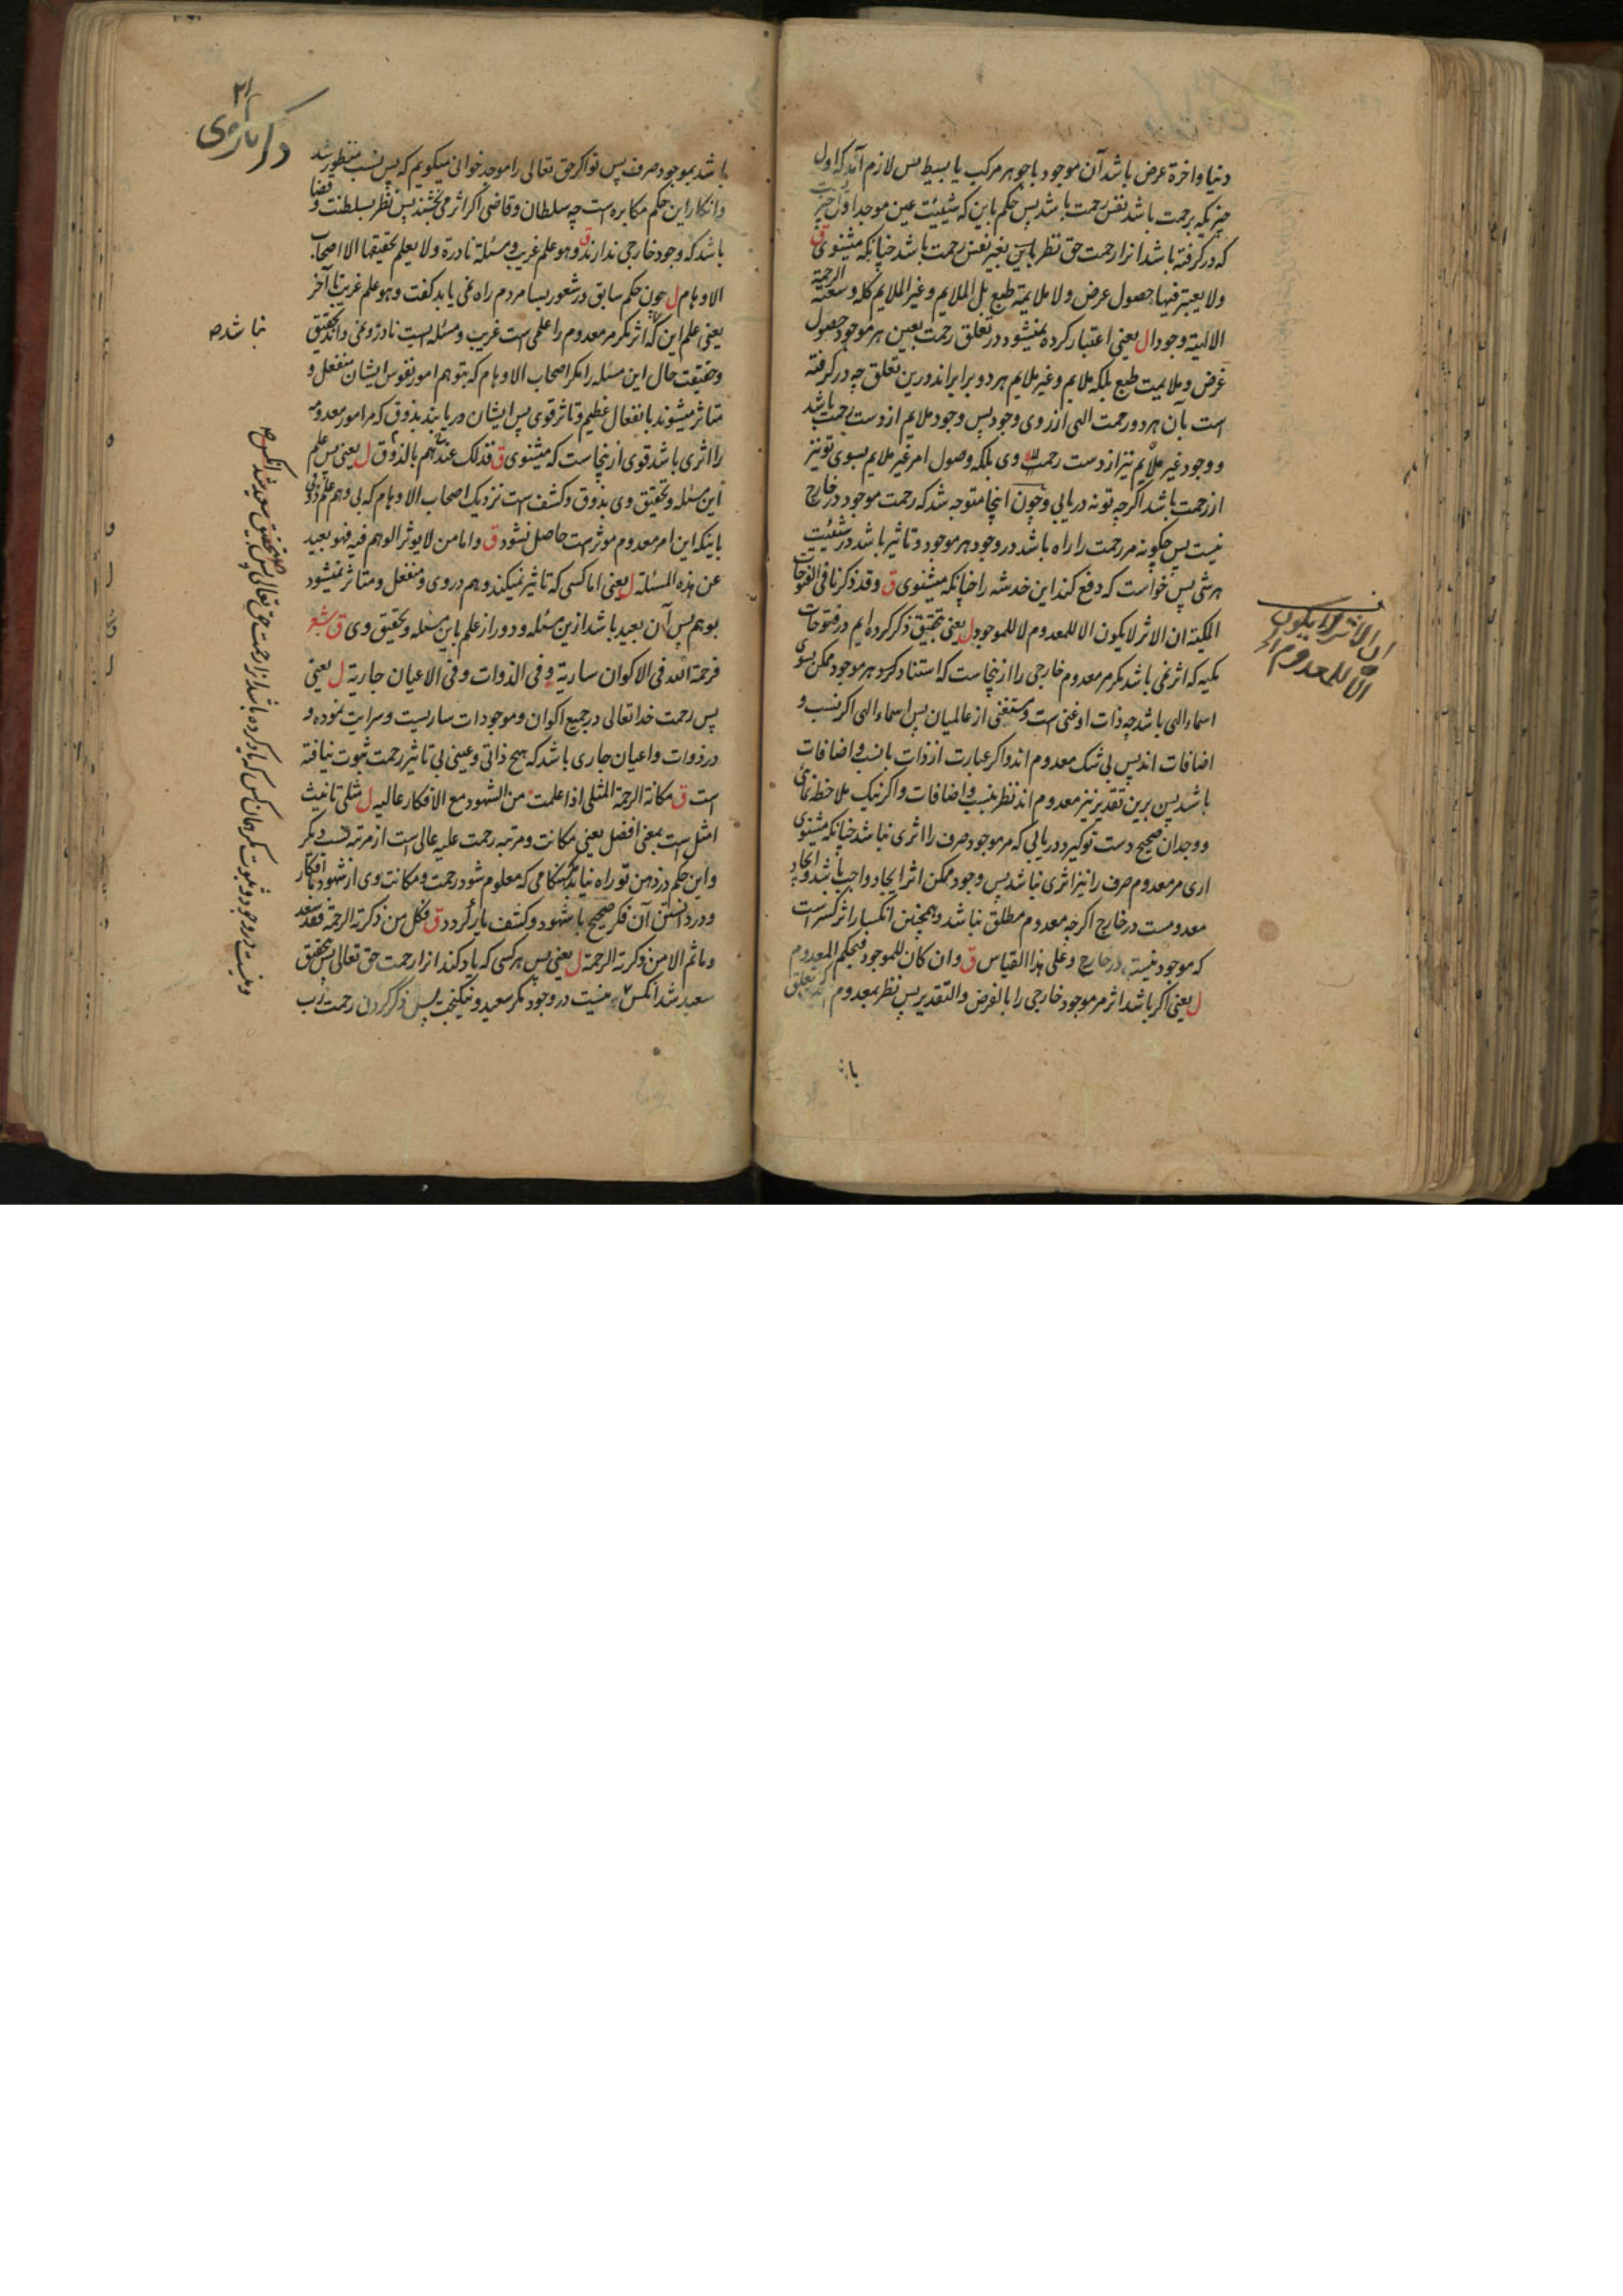 دنیا واخرة عرض باشد آن موجود یا جوهر مرکب یا بسیط پس لازم آید که اول
چیزیکه برحمت باشد نفس رحمت باشد پس حکم باین که شیئیت عین موجد اول چیز
که در گرفته باشد انرا رحمت حق نظر باین بغیر نفس رحمت باشد چنانکه میشنوی ق
ولا یعتبر فیها حصول عرض ولا ملایمة طبع بل الملایم وغیر الملایم کله وسعته الرحمة
الالهیة وجودا ل یعنی اعتبار کرده نمیشود در تعلق رحمت بعین هر موجود حصول
غرض وملایمت طبع بلکه ملایم وغیر ملایم هر دو برابر اند درین تعلق چه در گرفته
است بآن هر دو رحمت الهی از روی وجود پس وجود ملایم از دست رحمت باشد
ووجود غیر ملایم نیز از دست رحمت وی بلکه وصول امر غیر ملایم بسوی تو نیز
از رحمت باشد اگرچه تو نه دریابی وچون اینجا متوجه شد که رحمت موجود در خارج
نیست پس چگونه مر رحمت را راه باشد در وجود هر موجود وتاثیر باشد در شیئیت
هر شی پس خواست که دفع کند این خدشه را چنانکه میشنوی ق وقد ذکرنا فی الفتوحات
المکیة ان الاثر لا یکون الا للمعدوم لا للموجود ل یعنی بتحقیق ذکر کرده ایم در فتوحات
مکیه که اثر نمی باشد مگر مر معدوم خارجی را از نجاست که استناد کرد هر موجود ممکن بسوی
اسماء الهی باشد چه ذات او غنی است ومستغنی از عالمیان پس اسماء الهی اگر نسب و
اضافات اند پس بی شک معدوم اند واگر عبارت از ذات با نسب واضافات
باشد پس برین تقدیر نیز معدوم اند نظر بنسب واضافات واگر نیک ملاحظه نمائی
ووجدان صحیح دست تو گیرد دریابی که مر موجود صرف را اثری نباشد چنانکه میشنوی
اری مر معدوم صرف را نیز اثری نباشد پس وجود ممکن اثر ایجاد واجب باشد وایجاد
معدومست در خارج اگرچه معدوم مطلق نباشد وهمچنین انکسار اثر کسر است
که موجود نیست در خارج وعلی هذا القیاس ق وان کان للموجود فبحکم المعدوم
ل یعنی اگر باشد اثر مر موجود خارجی را بالفرض والتقدیر پس نظر بمعدوم
باشد
ان الاثر لا یکون
الا للمعدوم الخ
۲۱
باشد بموجود صرف پس تو اگر حق تعالی را موجد خوانی میگویم که پس نسب منظور شد
وانکار این حکم مکابره است چه سلطان وقاضی اگر اثر می بخشند پس نظر بسلطنت وقضا
باشد که وجود خارجی ندارند ق وهو علم غریب ومسئلة نادرة ولا یعلم تحقیقها الا اصحاب
الاوهام ل چون حکم سابق در شعور بسا مردم راه نمی یابد گفت وهو علم غریب تا آخر
یعنی علم این که اثر مگر مر معدوم را علمی است غریب ومسئله ایست نادر ونمی داند تحقیق
وحقیقت حال این مسئله را مگر اصحاب الاوهام که بتوهم امور نفوس ایشان منفعل و
متاثر میشوند بانفعال عظیم وتاثر قوی پس ایشان دریابند بذوق که مر امور معدومه
را اثری باشد قوی از ینجاست که میشنوی ق فذلک عندهم بالذوق ل یعنی پس علم
این مسئله وتحقیق وی بذوق وکشف است نزدیک اصحاب الاوهام که بی وهم علم ذوقی
باینکه این امر معدوم موثر است حاصل نشود ق واما من لا یوثر الوهم فیه فهو بعید
عن هذه المسئلة ل یعنی اما کسی که تاثیر نمیکند وهم در وی ومنفعل ومتاثر نمیشود
بوهم پس آن بعید باشد ازین مسئله ودور از علم باین مسئله وتحقیق وی ق شعر
فرحمة الله فی الاکوان ساریة وفی الذوات وفی الاعیان جاریة ل یعنی
پس رحمت خدا تعالی در جمیع اکوان وموجودات ساریست وسرایت نموده و
در ذوات واعیان جاری باشد که هیچ ذاتی وعینی بی تاثیر رحمت ثبوت نیافته
است ق مکانة الرحمة المثلی اذا علمت من الشهود مع الافکار عالیه ل مثلی تانیث
امثل است بمعنی افضل یعنی مکانت ومرتبه رحمت علیه عالی است از مرتبه نسب دیگر
واین حکم در ذهن تو راه نیابد مگر هنگامی که معلوم شود رحمت ومکانت وی از شهود با افکار
ودر دانستن آن فکر صحیح با شهود وکشف یار گردد ق فکل من ذکرته الرحمة فقد سعد
وما ثم الا من ذکرته الرحمة ل یعنی پس هر کسی که یاد کند انرا رحمت حق تعالی پس بتحقیق
سعید شد آنکس ونیست در وجود مگر سعید ونیکبخت پس ذکر کردن رحمت رب
نباشد صح